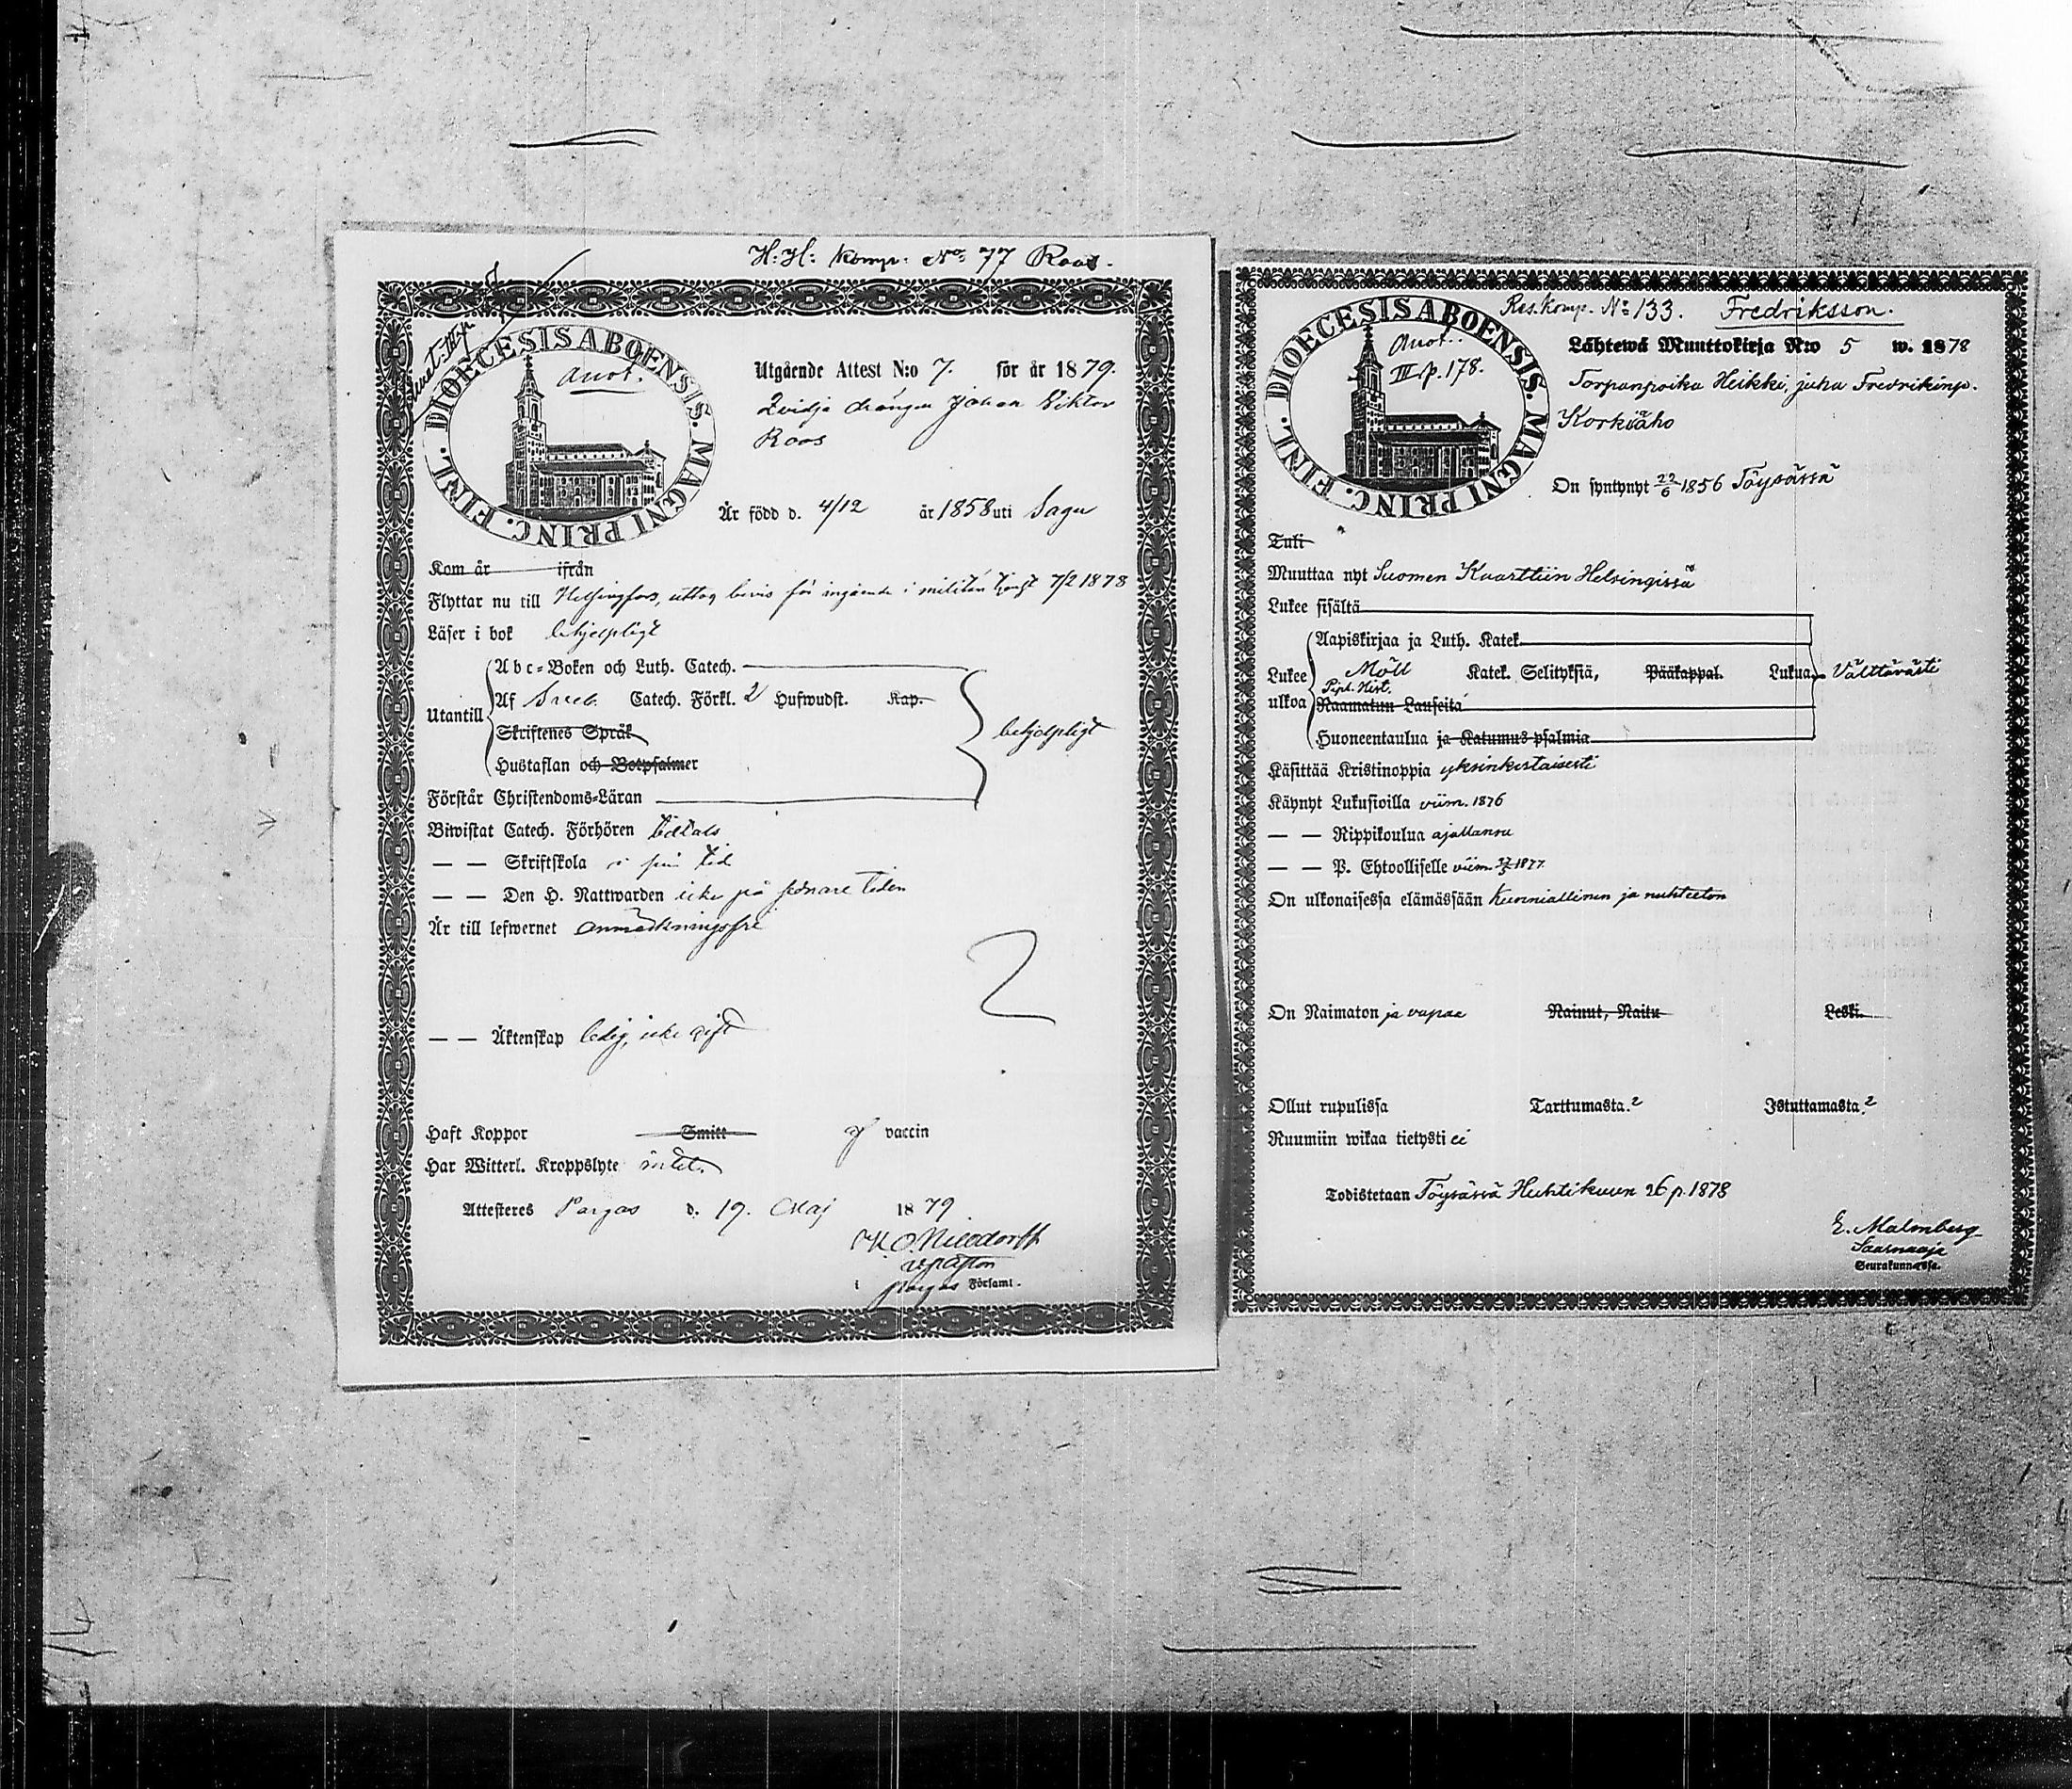 H: H: Komp: No: 77 Roos.
DIOECESIS ABOENSIS. MAGNI PRINC. FINL.
Anot.
Utgående Attest N:o 7. för år 1879.
drängen Johan Viktor
Roos
Är född d. 4/12 år 1858 uti Sagu
Kom år ifrån
Flyttar nu till Helsingfors, uttog bevis för ingående i militär tjenst 7/2 1878
Läser i bok behjelpligt
Abc-Boken och Luth. Catech.
Utantill
Af Sveb. Catech. Förkl. 2 Hufwudst. Kap.
Skriftenes Språk
behjelpligt
Hustaflan och Botpsalmer
Förstår Christendoms-Läran
Biwistat Catech. Förhören
— — Skriftskola i sin tid
— — Den H. Nattwarden icke på senare tiden
Är till lefwernet anmärkningsfri
2
— — Äktenskap ledig, icke gift
Haft Koppor Smitt af vaccin
Har Witterl. Kroppslyte intet.
Attesteres Pargas d. 19. Maj 1879
i Pargas Församl.
Res. Komp. No: 133. Fredriksson.
DIOECESIS ABOENSIS. MAGNI PRINC. FINL.
Anot.
III p. 178.
Lähtewä Muuttokirja N:o 5 w. 1878
Torpanpoika Heikki, juha Fredrikinp.
Korkiaho
On syntynyt 22/6 1856 Töysässä
Tuli
Muuttaa nyt Suomen Kaarttiin Helsingissä
Lukee sisältä
Aapiskirjaa ja Luth. Katek.
Lukee Möll Katek. Selityksiä, Pääkappal. Lukua Välttävästi
Pipl. Hist.
ulkoa Raamatun Lauseita
Huoneentaulua ja Katumus psalmia
Käsittää Kristinoppia yksinkertaisesti
Käynyt Lukusioilla viim. 1876
— — Rippikoulua ajallansa
— — P. Ehtoolliselle viim. 1877.
On ulkonaisessa elämässään kunniallinen ja nuhteeton
On Naimaton ja vapaa Nainut, Naitu Leski.
Ollut rupulissa Tarttumasta.? Istuttamasta.?
Ruumiin wikaa tietysti ei
Todistetaan Töysässä Huhtikuun 26 p. 1878
E. Malmberg
Saarnaaja
Seurakunnassa.